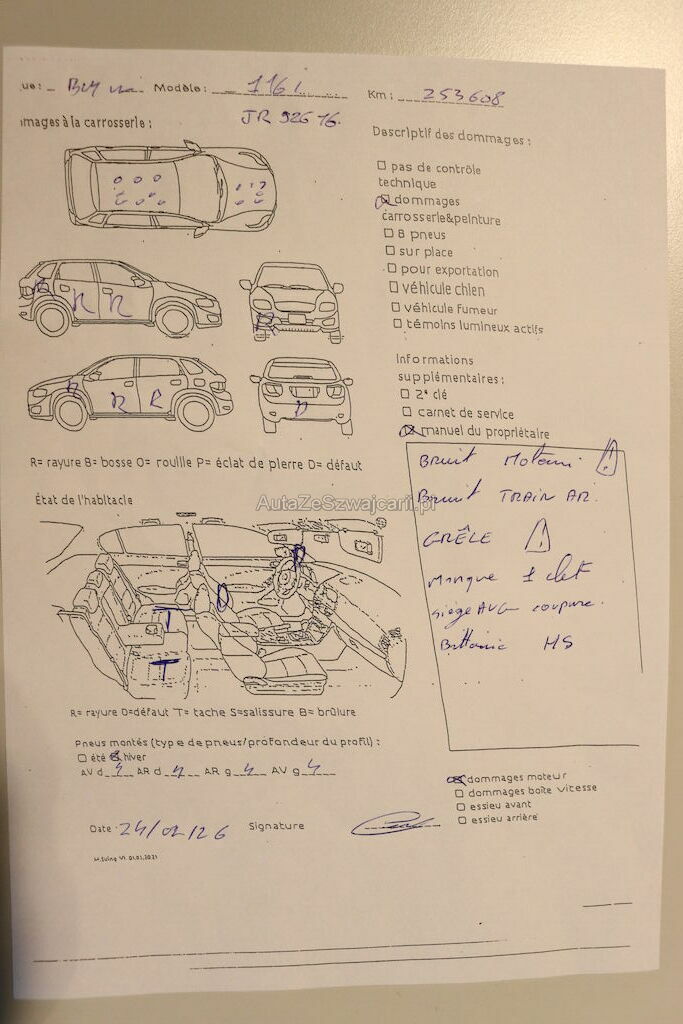 ue: BMW Modèle: 116i Km: 253608
JR 926 16.
mages à la carrosserie :
Descriptif des dommages :
pas de contrôle
technique
dommages
carrosserie&peinture
8 pneus
sur place
pour exportation
véhicule chien
véhicule fumeur
témoins lumineux actifs
R R R
R
R R R
D
Informations
supplémentaires :
2ª clé
carnet de service
manuel du propriétaire
R= rayure B= bosse O= rouille P= éclat de pierre D= défaut
Bruit Moteur !
Bruit TRAIN AR.
GRÊLE !
Manque 1 clef
siège AVG coupure.
Batterie HS
État de l'habitacle
AutaZeSzwajcarii.pl
T
T
R= rayure D=défaut T= tache S=salissure B= brûlure
Pneus montés (type de pneus/profondeur du profil) :
été hiver
AV d 4 AR d 4 AR g 4 AV g 4
dommages moteur
dommages boîte vitesse
essieu avant
essieu arrière
Date 24/02/26 Signature
V1 01.01.2021